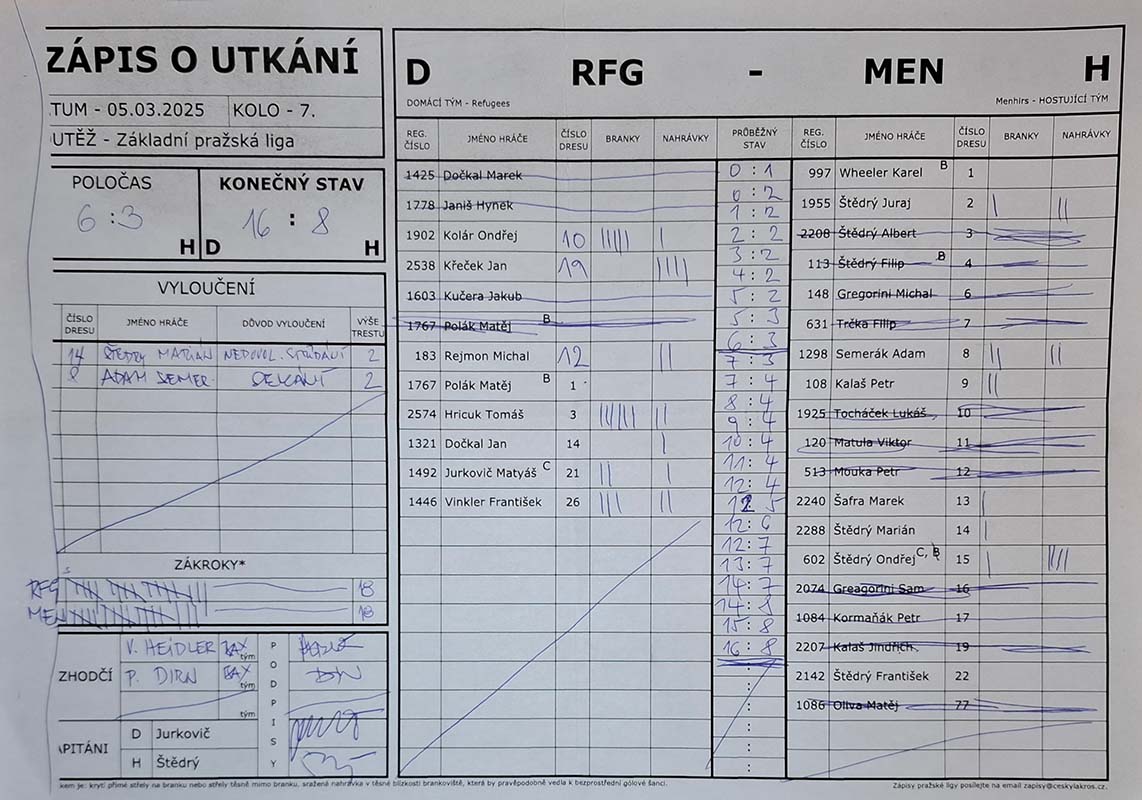 ZÁPIS O UTKÁNÍ
TUM - 05.03.2025 KOLO - 7.
OUTĚŽ - Základní pražská liga
POLOČAS KONEČNÝ STAV
6 : 3 16 : 8
H D H
VYLOUČENÍ
ČÍSLO DRESU JMÉNO HRÁČE DŮVOD VYLOUČENÍ VÝŠE TRESTU
14 ŠTĚDRÝ MARIÁN NEDOVOL. STŘÍDÁNÍ 2
8 ADAM SEMER 2
ZÁKROKY*
RFG 18
MEN 18
ZHODČÍ
V. HEIDLER tým
P. DIRN tým
tým
PODPISY
APITÁNI
D Jurkovič
H Štědrý
D RFG - MEN H
DOMÁCÍ TÝM - Refugees Menhirs - HOSTUJÍCÍ TÝM
REG. ČÍSLO JMÉNO HRÁČE ČÍSLO DRESU BRANKY NAHRÁVKY PRŮBĚŽNÝ STAV REG. ČÍSLO JMÉNO HRÁČE ČÍSLO DRESU BRANKY NAHRÁVKY
1425 Dočkal Marek
1778 Janiš Hynek
1902 Kolár Ondřej 10 ||||| |
2538 Křeček Jan 19 ||||
1603 Kučera Jakub
1767 Polák Matěj B
183 Rejmon Michal 12 ||
1767 Polák Matěj B 1
2574 Hricuk Tomáš 3 |||||| ||
1321 Dočkal Jan 14 |
1492 Jurkovič Matyáš C 21 || |
1446 Vinkler František 26 ||| ||
0 : 1
0 : 2
1 : 2
2 : 2
3 : 2
4 : 2
5 : 2
5 : 3
6 : 3
7 : 3
7 : 4
8 : 4
9 : 4
10 : 4
11 : 4
12 : 4
12 5
12 : 6
12 : 7
13 : 7
14 : 7
14 : 8
15 : 8
16 : 8
997 Wheeler Karel B 1
1955 Štědrý Juraj 2 | ||
2208 Štědrý Albert 3
113 Štědrý Filip B 4
148 Gregorini Michal 6
631 Trčka Filip 7
1298 Semerák Adam 8 || ||
108 Kalaš Petr 9 ||
1925 Tocháček Lukáš 10
120 Matula Viktor 11
513 Mouka Petr 12
2240 Šafra Marek 13 |
2288 Štědrý Marián 14 |
602 Štědrý Ondřej C, B 15 | ||||
2074 Greagorini Sam 16
1084 Kormaňák Petr 17
2207 Kalaš Jindřich 19
2142 Štědrý František 22
1086 Oliva Matěj 77
kem je: krytí přímé střely na branku nebo střely těsně mimo branku, sražená nahrávka v těsné blízkosti brankoviště, která by pravděpodobně vedla k bezprostřední gólové šanci.
Zápisy pražské ligy posílejte na email zapisy@ceskylakros.cz.